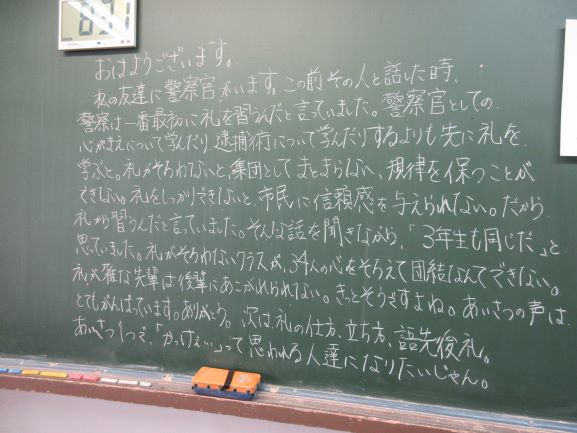 おはようございます。
私の友達に警察官がいます。この前その人と話した時、
警察は一番最初に礼を習うんだと言っていました。警察官としての
心がまえについて学んだり、逮捕術について学んだりするよりも先に礼を
学ぶと。礼がそろわないと、集団としてまとまらない、規律を保つことが
できない。礼をしっかりできないと、市民に信頼感を与えられない。だから
礼から習うんだと言っていました。そんな話を聞きながら、「3年生も同じだ」と
思っていました。礼がそろわないクラスが、34人の心をそろえて団結なんてできない。
礼が雑な先輩は後輩にあこがれられない。きっとそうですよね。あいさつの声は
とてもがんばっています。ありがとう。次は礼の仕方、立ち方、語先後礼。
あいさつ1つで、「かっけぇ…」って思われる人達になりたいじゃん。